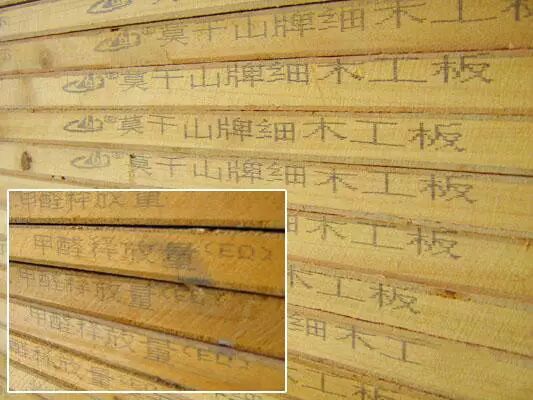 莫干山牌细木工板
®莫干山牌细木工板
®莫干山牌细木工板
®莫干山牌细木工板
®莫干山牌细木工板
木工板
工板
细木工
细木工板
甲醛释放量
甲醛释放量<E0>
甲醛释放量<E0
甲醛释放量<E0>
甲醛释放量<E0